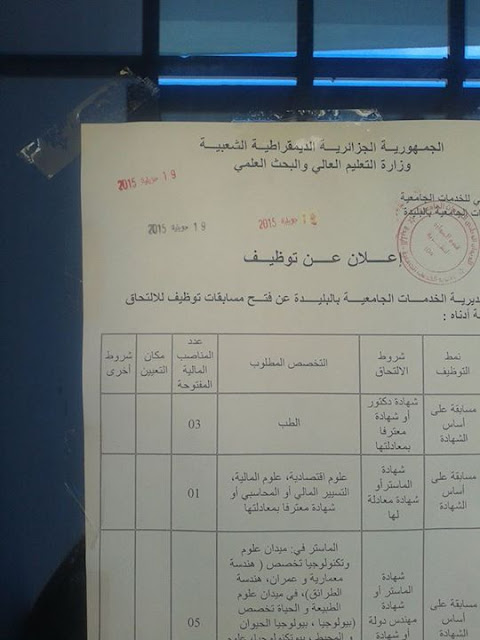 الجمهورية الجزائرية الديمقراطية الشعبية
وزارة التعليم العالي والبحث العلمي
للخدمات الجامعية
الجامعية بالبليدة
19 جويلية 2015
19 جويلية 2015
جويلية 2015
إعلان عن توظيف
الخدمات الجامعية بالبليدة عن فتح مسابقات توظيف للالتحاق
أدناه :
نمط التوظيف
شروط الالتحاق
التخصص المطلوب
عدد المناصب المالية المفتوحة
مكان التعيين
شروط أخرى
مسابقة على أساس الشهادة
شهادة دكتور أو شهادة معترفا بمعادلتها
الطب
03
مسابقة على أساس الشهادة
شهادة الماستر أو شهادة معادلة لها
علوم اقتصادية، علوم المالية،
التسيير المالي أو المحاسبي أو
شهادة معترفا بمعادلتها
01
مسابقة على أساس الشهادة
شهادة الماستر أو شهادة مهندس دولة أو شهادة
الماستر في: ميدان علوم
وتكنولوجيا تخصص ( هندسة
معمارية و عمران، هندسة
الطرائق)، في ميدان علوم
الطبيعة و الحياة تخصص
(بيولوجيا ، بيولوجيا الحيوان
05